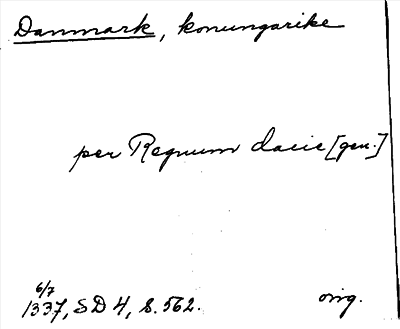 Danmark, konungarike
per Regnum dacie [gen.]
6/7
1337, SD 4, S. 562. orig.